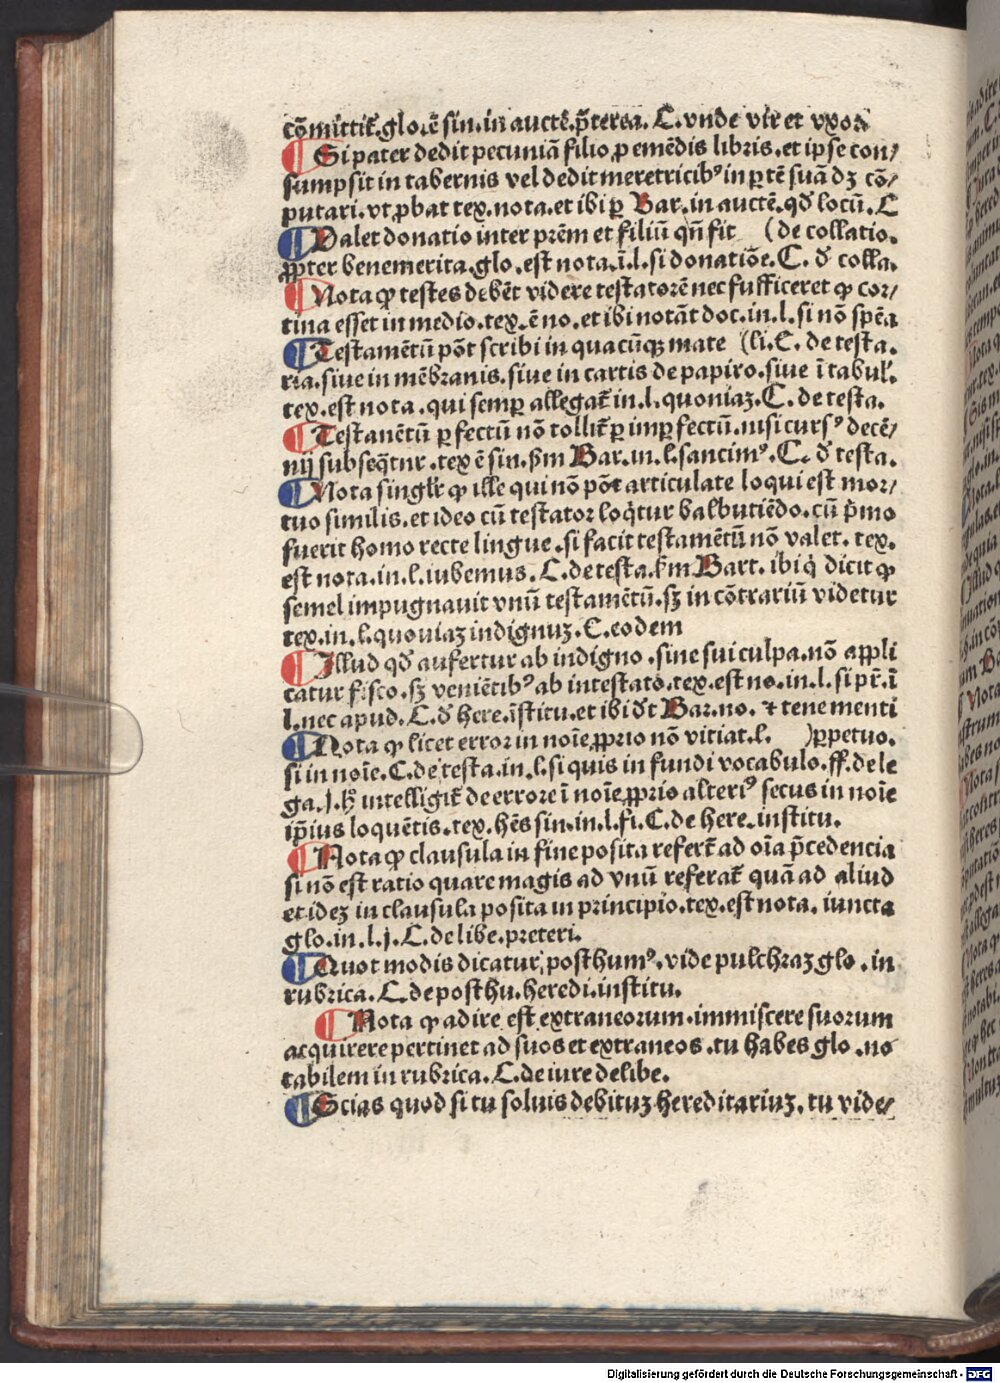 cōmittit᷑.glo.rē sin.in auctē.p̄terea. C.vnde vir et vxor
¶ Si pater dedit pecuniā filio ꝓ emēdis libris.et ipse con/
sumpsit in tabernis vel dedit meretricibꝰ in ꝑtē suā dꝫ cō/
putari.vt ꝓbat tex.nota.et ibi ꝑ Bar.in auctē.qd̄ locū.C
¶ Valet donatio inter prēm et filiū qn̄ fit (de collatio.
ꝓpter benemerita.glo.est nota.ī.l.si donatiōe.C. d̄ colla.
¶ Nota ꝙ testes debēt videre testatorē nec sufficeret ꝙ cor/
tina esset in medio.tex.ē no.et ibi notāt doc.in.l.si nō spēa
¶ Testamētū pōt scribi in quacūqꝫ mate (li.C. de testa.
ria.siue in mēbranis.siue in cartis de papiro.siue ī tabul̕.
tex.est nota.qui semꝑ allegat᷑ in.l.quoniaꝫ.C.de testa.
¶ Testanētū ꝑfectū nō tollit᷑ ꝑ imꝑfectū.nisi cursꝰ decē/
nij subseq̄tur.tex ē sin.ẜm Bar.in.l.sancimꝰ.C. d̄ testa.
¶ Nota singl̕r ꝙ ille qui nō pōt articulate loqui est mor/
tuo similis.et ideo cū testator loq̄tur balbutiēdo.cū p̄mo
fuerit homo recte lingue.si facit testamētū nō valet. tex.
est nota.in.l.iubemus. C.de testa.ẜm Bart. ibi q̇ dicit ꝙ
semel impugnauit vnū testamētū.sꝫ in cōtrariū videtur
tex.in.l.quouiaꝫ indignuꝫ.C.eodem
¶ Illud qd̄ aufertur ab indigno.sine sui culpa.nō appli
catur fisco.sꝫ veniētibꝰ ab intestato.tex.est no.in.l.si pr̄.ī
l.nec apud.C.d̄ here.īstitu.et ibi d̄t Bar.no. ⁊ tene menti
¶ Nota ꝙ licet error in noīe ꝓprio nō vitiat.l. )ꝑpetuo.
si in noīe.C.de testa.in.l.si quis in fundi vocabulo.ff.de le
ga.j.hꝰ intelligit᷑ de errore ī noīe ꝓprio alteriꝰ secus in noīe
ip̄ius loquētis.tex.hēs sin.in.l.fi.C.de here.institu.
¶ Nota ꝙ clausula in fine posita refert᷑ ad oīa p̄cedencia
si nō est ratio quare magis ad vnū referat᷑ quā ad aliud
et ideꝫ in clausula posita in principio.tex.est nota. iuncta
glo.in.l.j.C.de libe.preteri.
¶ Quot modis dicatur posthumꝰ.vide pulchraꝫ glo.in
rubrica.C.de posthu.heredi.institu.
¶ Nota ꝙ adire est extraneorum.immiscere suorum
acquirere pertinet ad suos et extraneos.tu habes glo.no
tabilem in rubrica.C.de iure delibe.
¶ Scias quod si tu soluis debituꝫ hereditariuꝫ.tu vide/
Digitalisierung gefördert durch die Deutsche Forschungsgemeinschaft - DFG